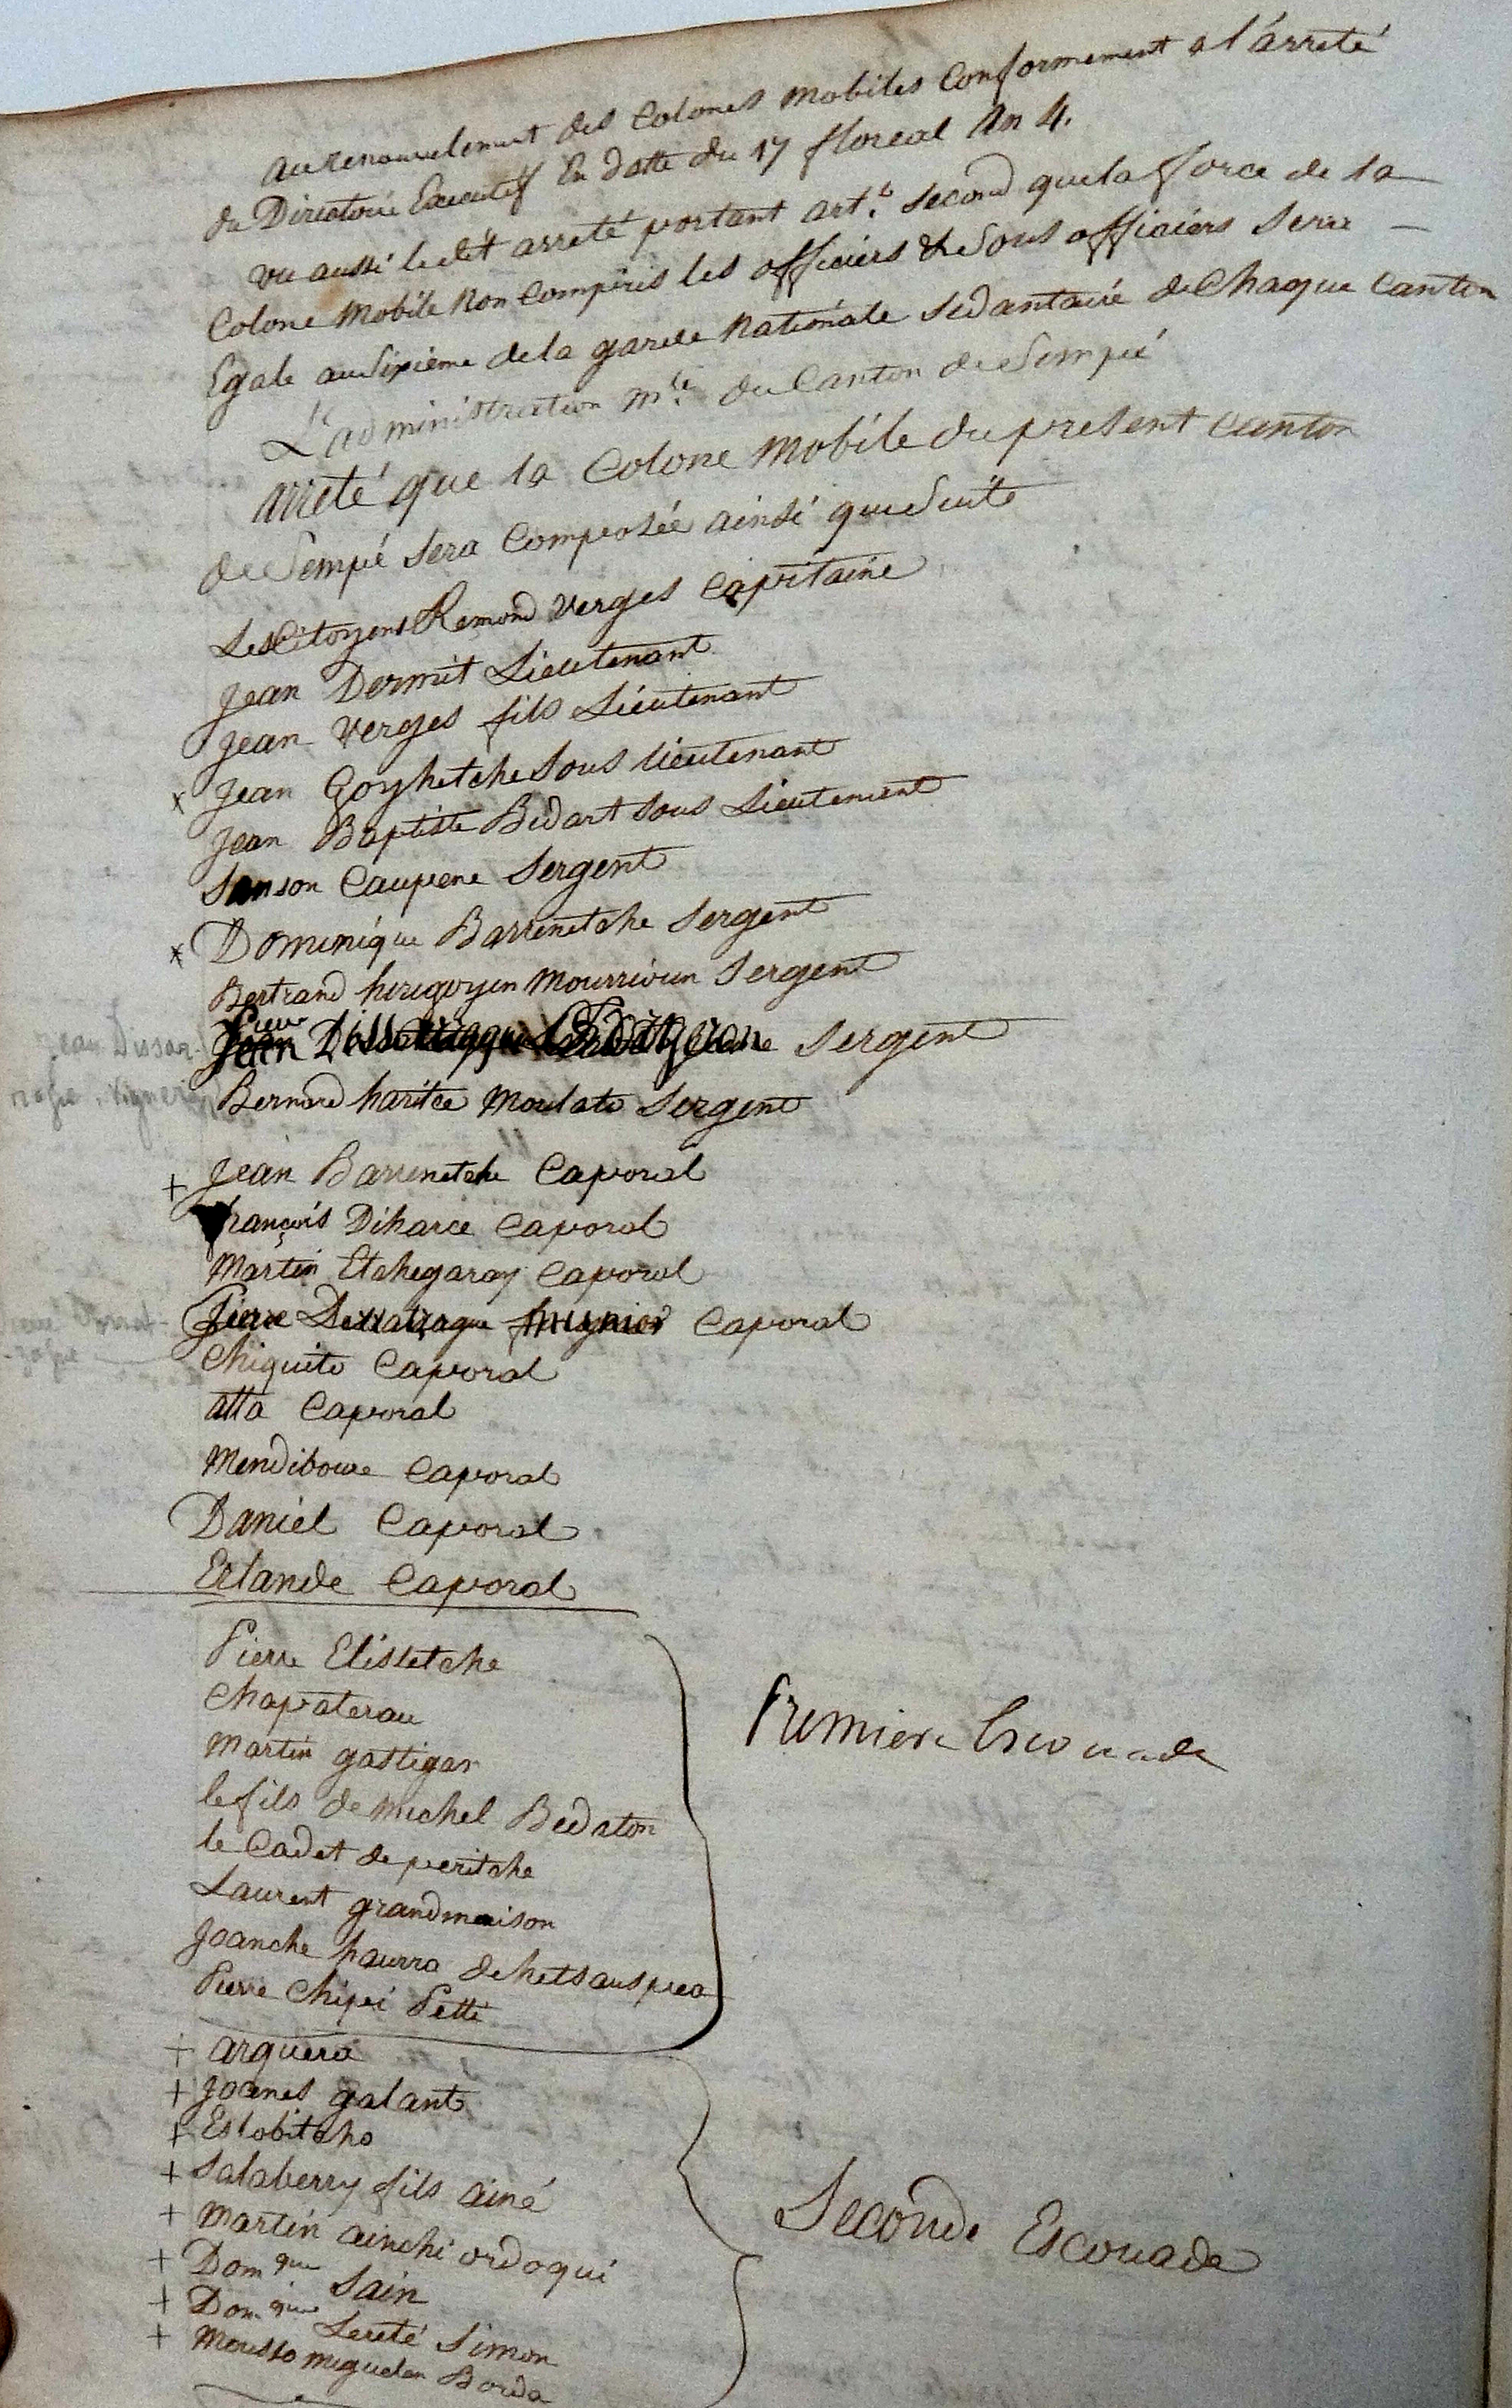 au renouvelement des Colones Mobiles Conformement a l'arreté
du Directoire Executif En datte du 17 floreal An 4.
vu aussi ledit arreté portant art.e second que la force de la
Colone Mobile Non Compris les officiers & Sous officiers sera
Egale au Sixieme de la garde Nationale Sedantaire de Chaque Canton
L'administration m.le du Canton de Sempé
arreté que la Colone Mobile du present Canton
de Sempé sera Composée ainsi que Suit
Les Citoyens Remond Verges Capitaine
Jean Dermit Lieutenant
Jean Verges fils Lieutenant
x Jean Goyhetche Sous lieutenant
Jean Baptiste Bidart Sous Lieutenant
Sanson Caupene Sergent
x Dominique Barrenetche Sergent
Bertrand hirigoyen Mourrioun Sergent
Jean Sergent
Jean Dissar-
Bernard haritce Moulate Sergent
+ Jean Barrenetche Caporal
François Diharce Caporal
Martin Etchegaray Caporal
Pierre Caporal
Chiquito Caporal
atta Caporal
Mendiboure Caporal
Daniel Caporal
Erlande Caporal
Pierre Elissetche
Chapaterau
Martin gastigar
le fils de Michel Bedaton
le Cadet de peritche
Laurent grandmaison
Joanche haurra dehetsauspea
Pierre Chipi Petti
Premiere Escouade
+ arguera
+ Joanes galant
+ Eslobitcho
+ Salaberry fils ainé
+ Martin ainchi ordoqui
+ Domque Sain
+ Domque Lereté Simon
+ Mousso miguelen Borda
Seconde Escouade